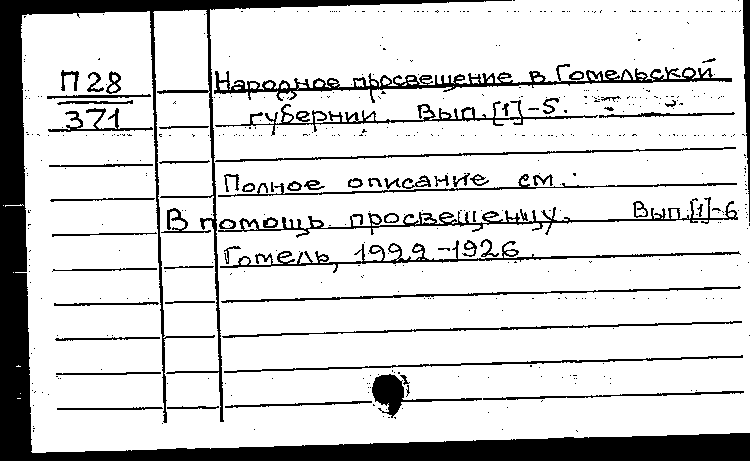 П28
371
Народное просвещение в Гомельской
губернии. Вып.[1]-5.
Полное описание см.:
В помощь просвещенцу. Вып.[1]-6
Гомель, 1922-1926.